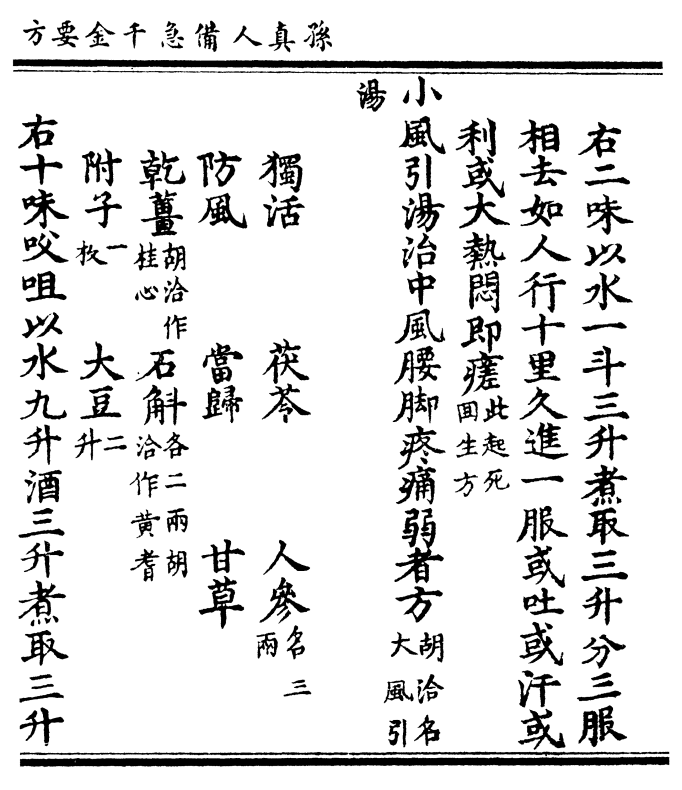 孫真人備急千金要方
右二味以水一斗三升煮取三升分三服
相去如人行十里久進一服或吐或汗或
利或大熱悶即瘥此起死回生方
小風引湯治中風腰脚疼痛弱者方胡洽名大風引
湯
獨活 茯苓 人參各三兩
防風 當歸 甘草
乾薑胡洽作桂心 石斛各二兩胡洽作黄耆
附子一枚 大豆二升
右十味㕮咀以水九升酒三升煮取三升